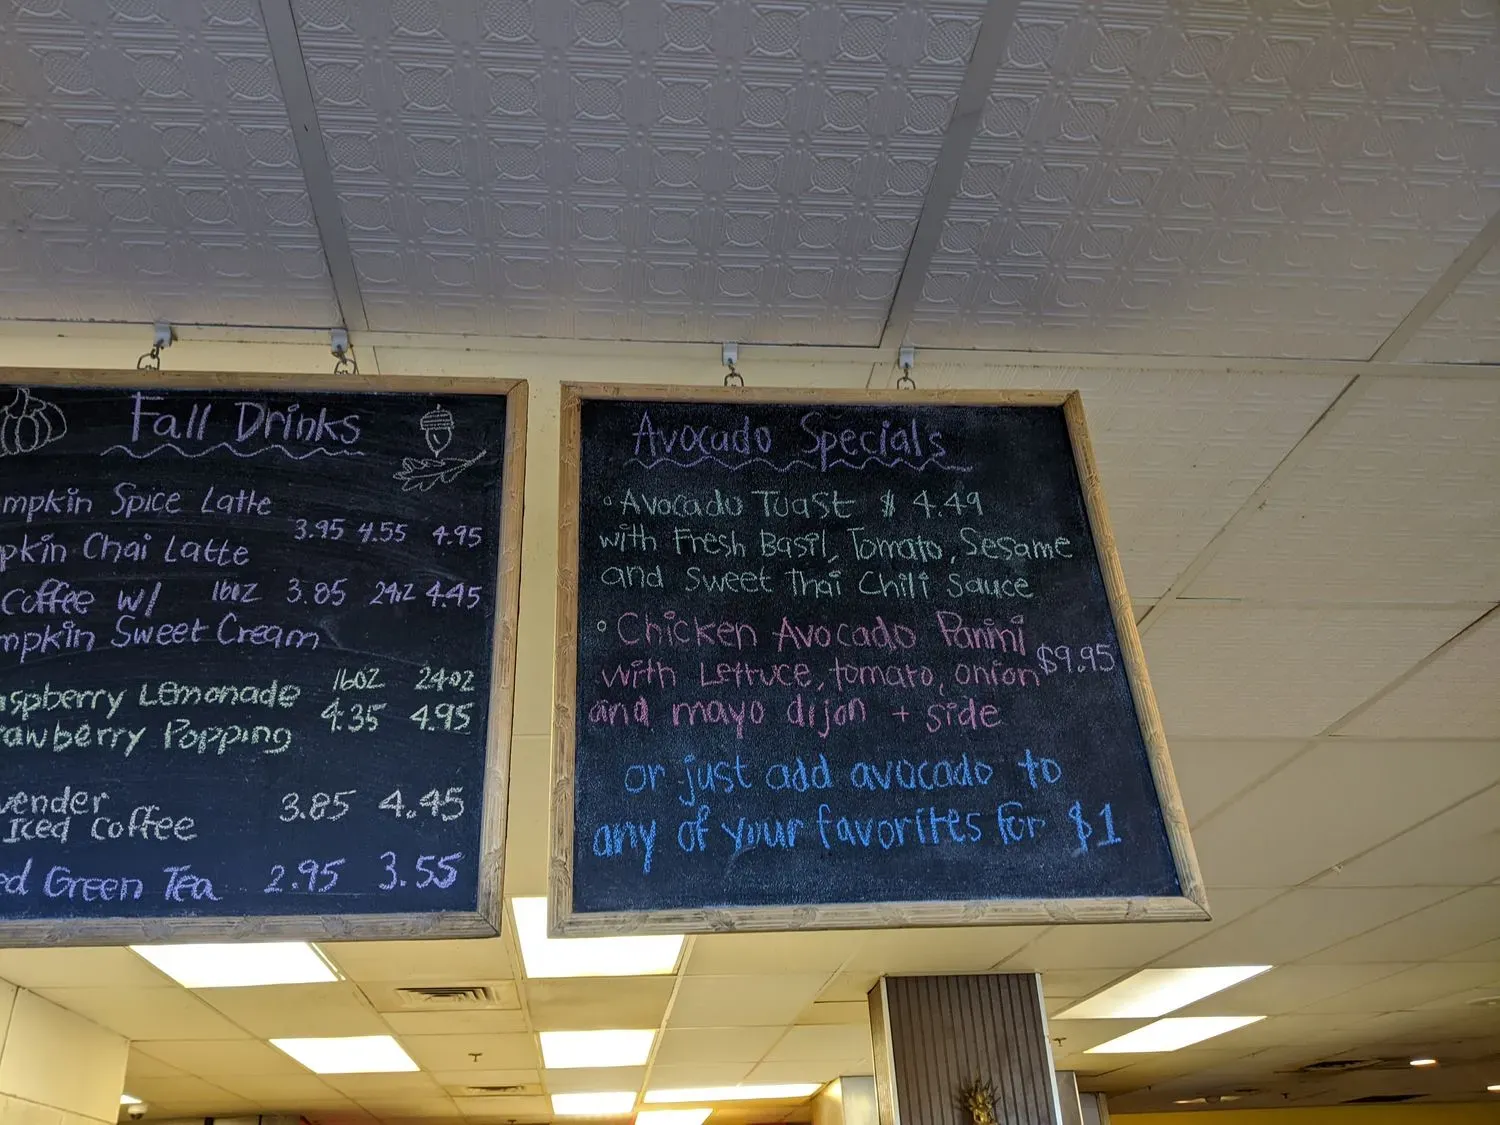 Fall Drinks
mpkin Spice Latte
3.95 4.55 4.95
pkin Chai Latte
Coffee w/ 16oz 3.85 24oz 4.45
mpkin Sweet Cream
16oz 24oz
spberry Lemonade
4.35 4.95
rawberry Popping
vender
3.85 4.45
Iced Coffee
ed Green Tea 2.95 3.55
Avocado Specials
Avocado Toast $4.49
with Fresh Basil, Tomato, Sesame
and Sweet Thai Chili Sauce
Chicken Avocado Panini
$9.95
with Lettuce, tomato, onion
and mayo dijon + side
or just add avocado to
any of your favorites for $1